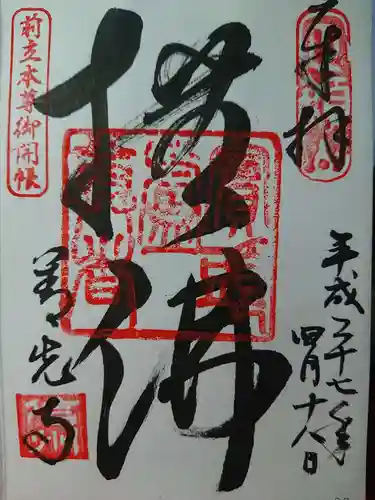 奉拝
平成二十七年
四月十八日
撫佛
前立本尊御開帳
善光寺